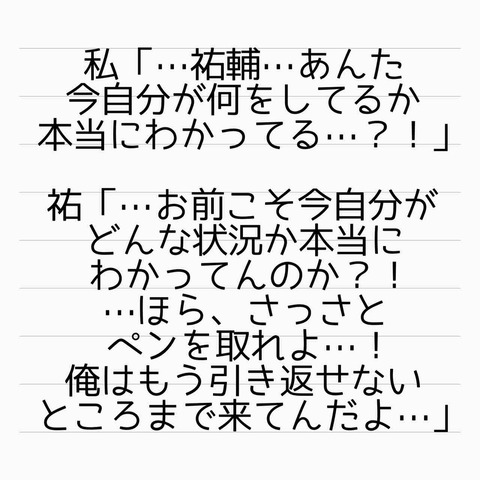 私「…祐輔…あんた
今自分が何をしてるか
本当にわかってる…？！」
祐「…お前こそ今自分が
どんな状況か本当に
わかってんのか？！
…ほら、さっさと
ペンを取れよ…！
俺はもう引き返せない
ところまで来てんだよ…」